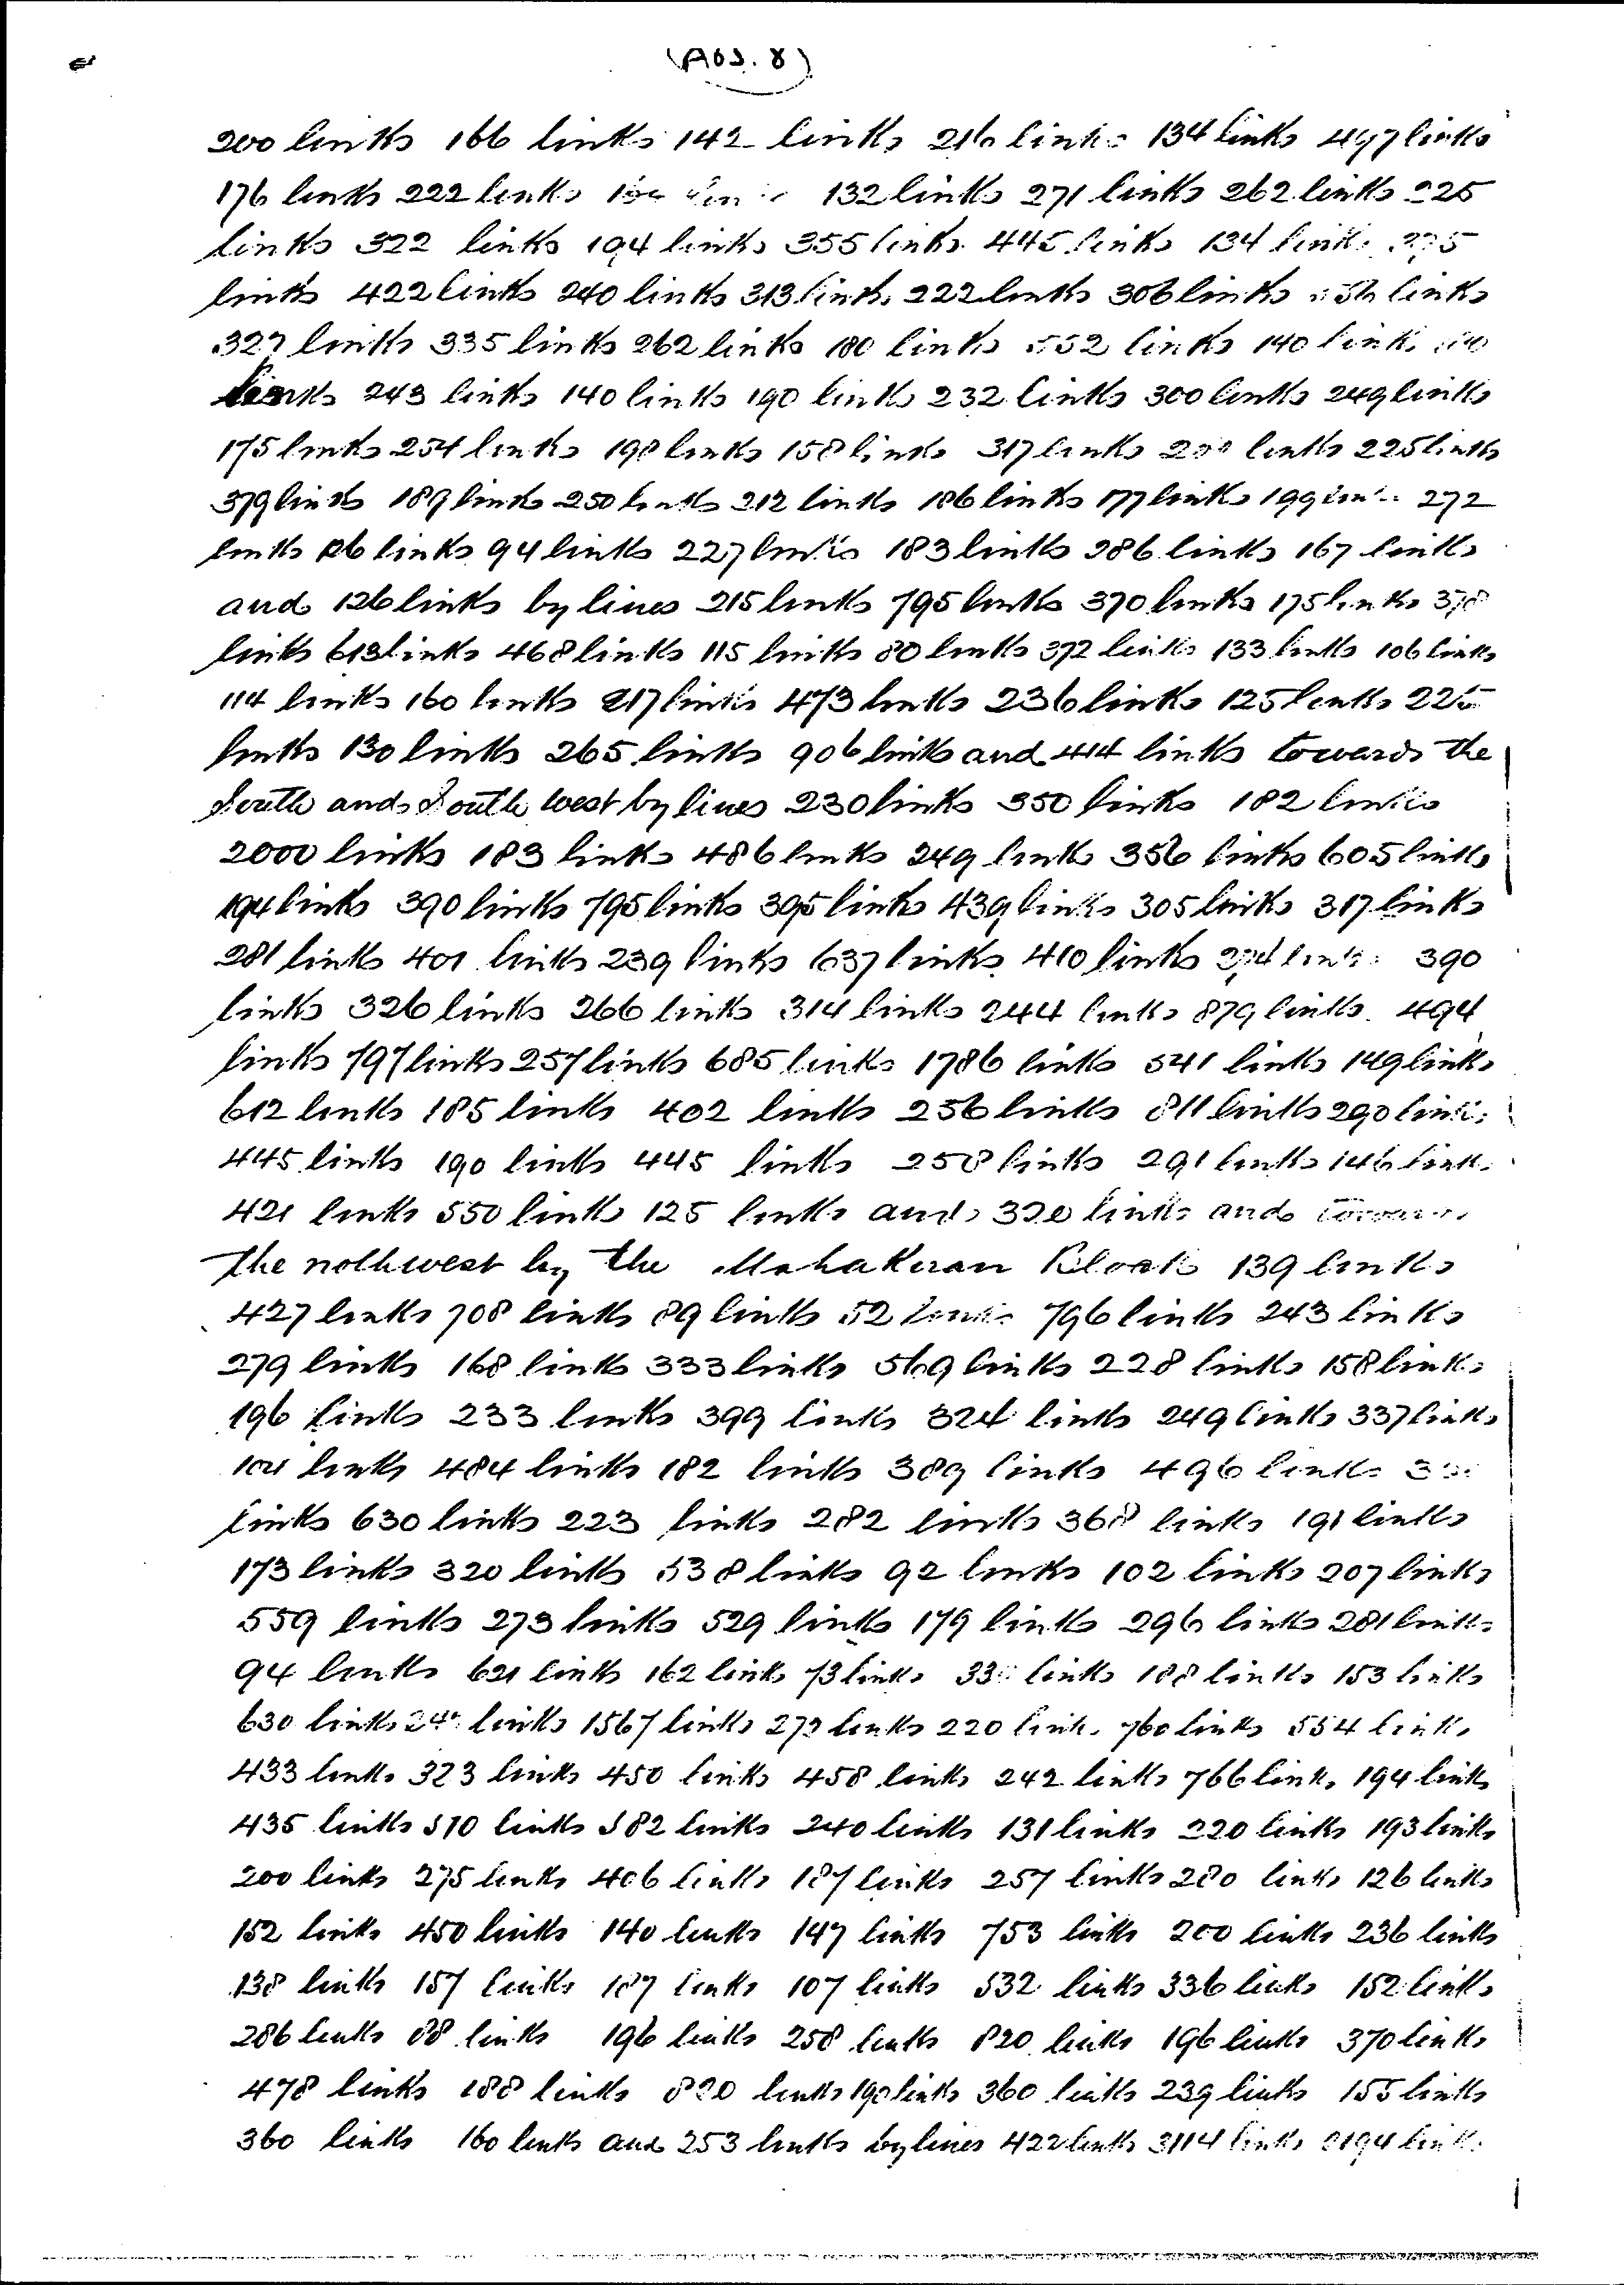 (A05. 8)
200 links 166 links 142 links 216 links 134 links 497 links
176 links 222 links 132 links 271 links 262 links 225
links 322 links 194 links 355 links 445 links 134 links
links 422 links 240 links 313 links 222 links 306 links links
327 links 335 links 262 links 180 links 552 links 140 links
links 243 links 140 links 190 links 232 links 300 links 249 links
175 links 254 links 198 links 158 links 317 links links 225 links
379 links 189 links 250 links 212 links 186 links 177 links 199 links 272
links 126 links 94 links 227 links 183 links 286 links 167 links
and 126 links by lines 215 links 795 links 370 links 175 links 378
links 613 links 468 links 115 links 80 links 372 links 133 links 106 links
114 links 160 links 217 links 473 links 236 links 125 links 225
links 130 links 265 links 906 links and 414 links towards the
South and South west by lines 230 links 350 links 182 links
2000 links 183 links 486 links 249 links 356 links 605 links
194 links 390 links 795 links 395 links 439 links 305 links 317 links
281 links 401 links 239 links 637 links 410 links links 390
links 326 links 266 links 314 links 244 links 879 links 494
links 797 links 257 links 685 links 1786 links 541 links 149 links
612 links 185 links 402 links 256 links 811 links 290 links
445 links 190 links 445 links 258 links 291 links 146 links
421 links 550 links 125 links and 320 links and towards
the nothwest by the Mahakuran Block 139 links
427 links 708 links 89 links 52 links 796 links 243 links
279 links 168 links 333 links 569 links 228 links 158 links
196 links 233 links 399 links 324 links 249 links 337 links
104 links 484 links 182 links 389 links 496 links
links 630 links 223 links 282 links 368 links 191 links
173 links 320 links 538 links 92 links 102 links 207 links
559 links 273 links 529 links 179 links 296 links 281 links
94 links 621 links 162 links 73 links links 188 links 153 links
630 links links 1567 links 273 links 220 links 760 links 554 links
433 links 323 links 450 links 458 links 242 links 766 links 194 links
435 links 510 links 582 links 240 links 131 links 220 links 193 links
200 links 275 links 406 links 187 links 257 links 280 links 126 links
152 links 450 links 140 links 147 links 753 links 200 links 236 links
138 links 157 links 187 links 107 links 532 links 336 links 152 links
286 links 88 links 196 links 258 links 820 links 196 links 370 links
478 links 188 links 820 links 190 links 360 links 239 links 155 links
360 links 160 links and 253 links by lines 422 links 3114 links 2194 links